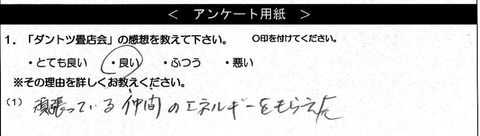 ＜ アンケート用紙 ＞
1．「ダントツ畳店会」の感想を教えて下さい。 〇印を付けてください。
・とても良い ・良い ・ふつう ・悪い
※その理由を詳しくお教えください。
(1) 頑張っている仲間のエネルギーをもらえた